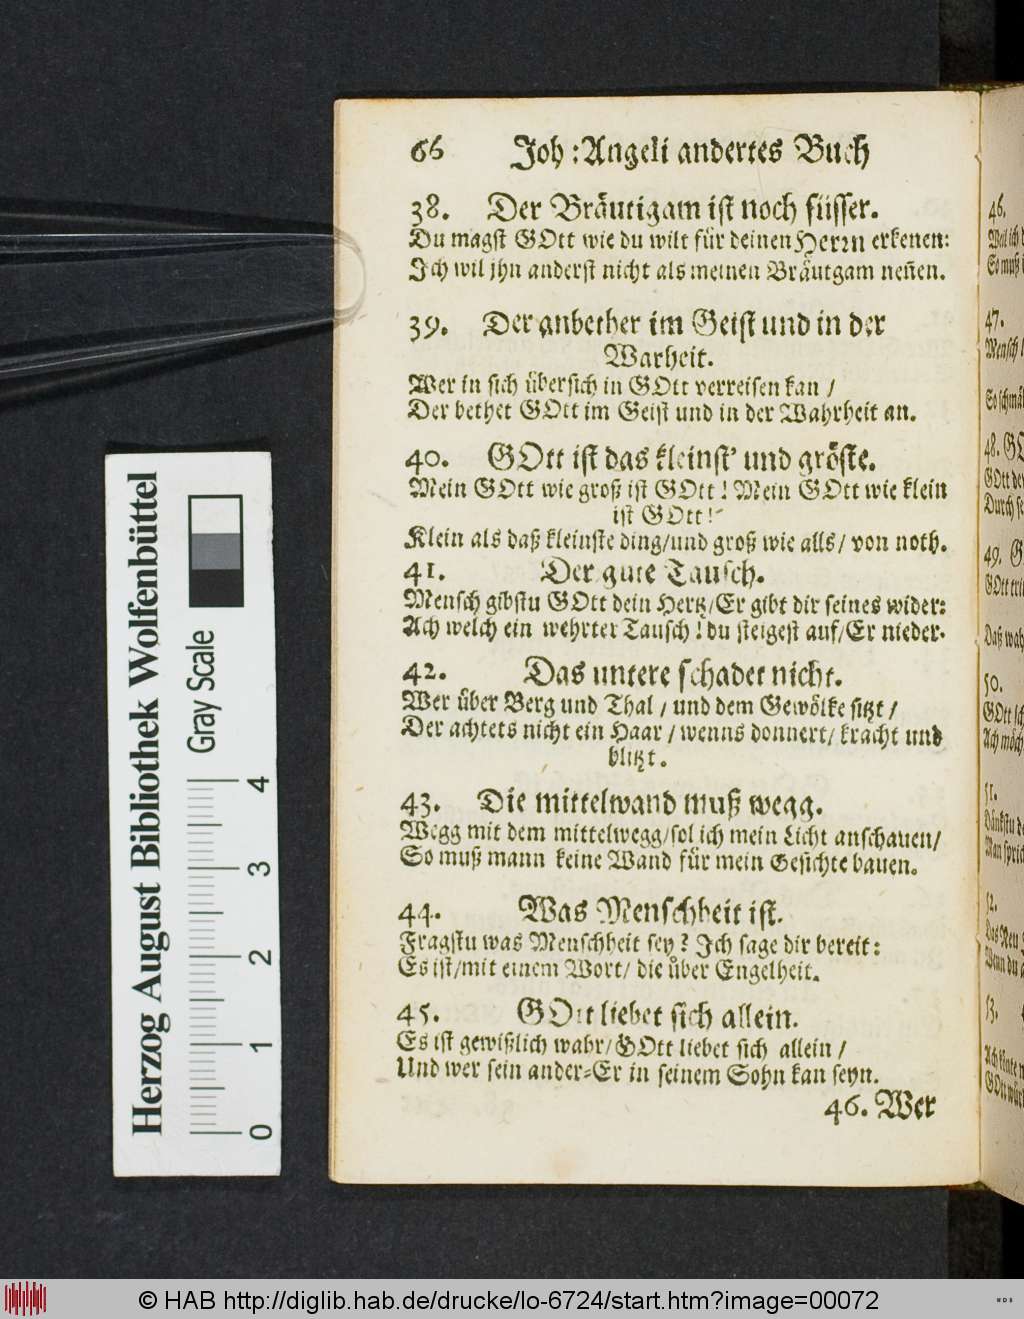 66 Joh: Angeli andertes Buch
38. Der Bräutigam ist noch süsser.
Du magst GOtt wie du wilt für deinen Herrn erkenen:
Ich wil jhn anderst nicht als meinen Bräutgam neñen.
39. Der anbether im Geist und in der
Warheit.
Wer in sich übersich in GOtt verreisen kan /
Der bethet GOtt im Geist und in der Wahrheit an.
40. GOtt ist das kleinst' und gröste.
Mein GOtt wie groß ist GOtt! Mein GOtt wie klein
ist GOtt!
Klein als daß kleinste ding/und groß wie alls/ von noth.
41. Der gute Tausch.
Mensch gibstu GOtt dein Hertz/Er gibt dir seines wider:
Ach welch ein wehrter Tausch! du steigest auf/Er nieder.
42. Das untere schadet nicht.
Wer über Berg und Thal / und dem Gewölke sitzt /
Der achtets nicht ein Haar / wenns donnert/ kracht und
blitzt.
43. Die mittelwand muß wegg.
Wegg mit dem mittelwegg/sol ich mein Licht anschauen/
So muß mann keine Wand für mein Gesichte bauen.
44. Was Menschheit ist.
Fragstu was Menschheit sey? Ich sage dir bereit:
Es ist/mit einem Wort/ die über Engelheit.
45. GOtt liebet sich allein.
Es ist gewißlich wahr/GOtt liebet sich allein /
Und wer sein ander=Er in seinem Sohn kan seyn.
46. Wer
46.
Weil ich
So muß
47.
Mensch
48. GO
49. G
50.
GOtt
51.
52.
53.
Herzog August Bibliothek Wolfenbüttel
Gray Scale
0 1 2 3 4
© HAB http://diglib.hab.de/drucke/lo-6724/start.htm?image=00072
WDB